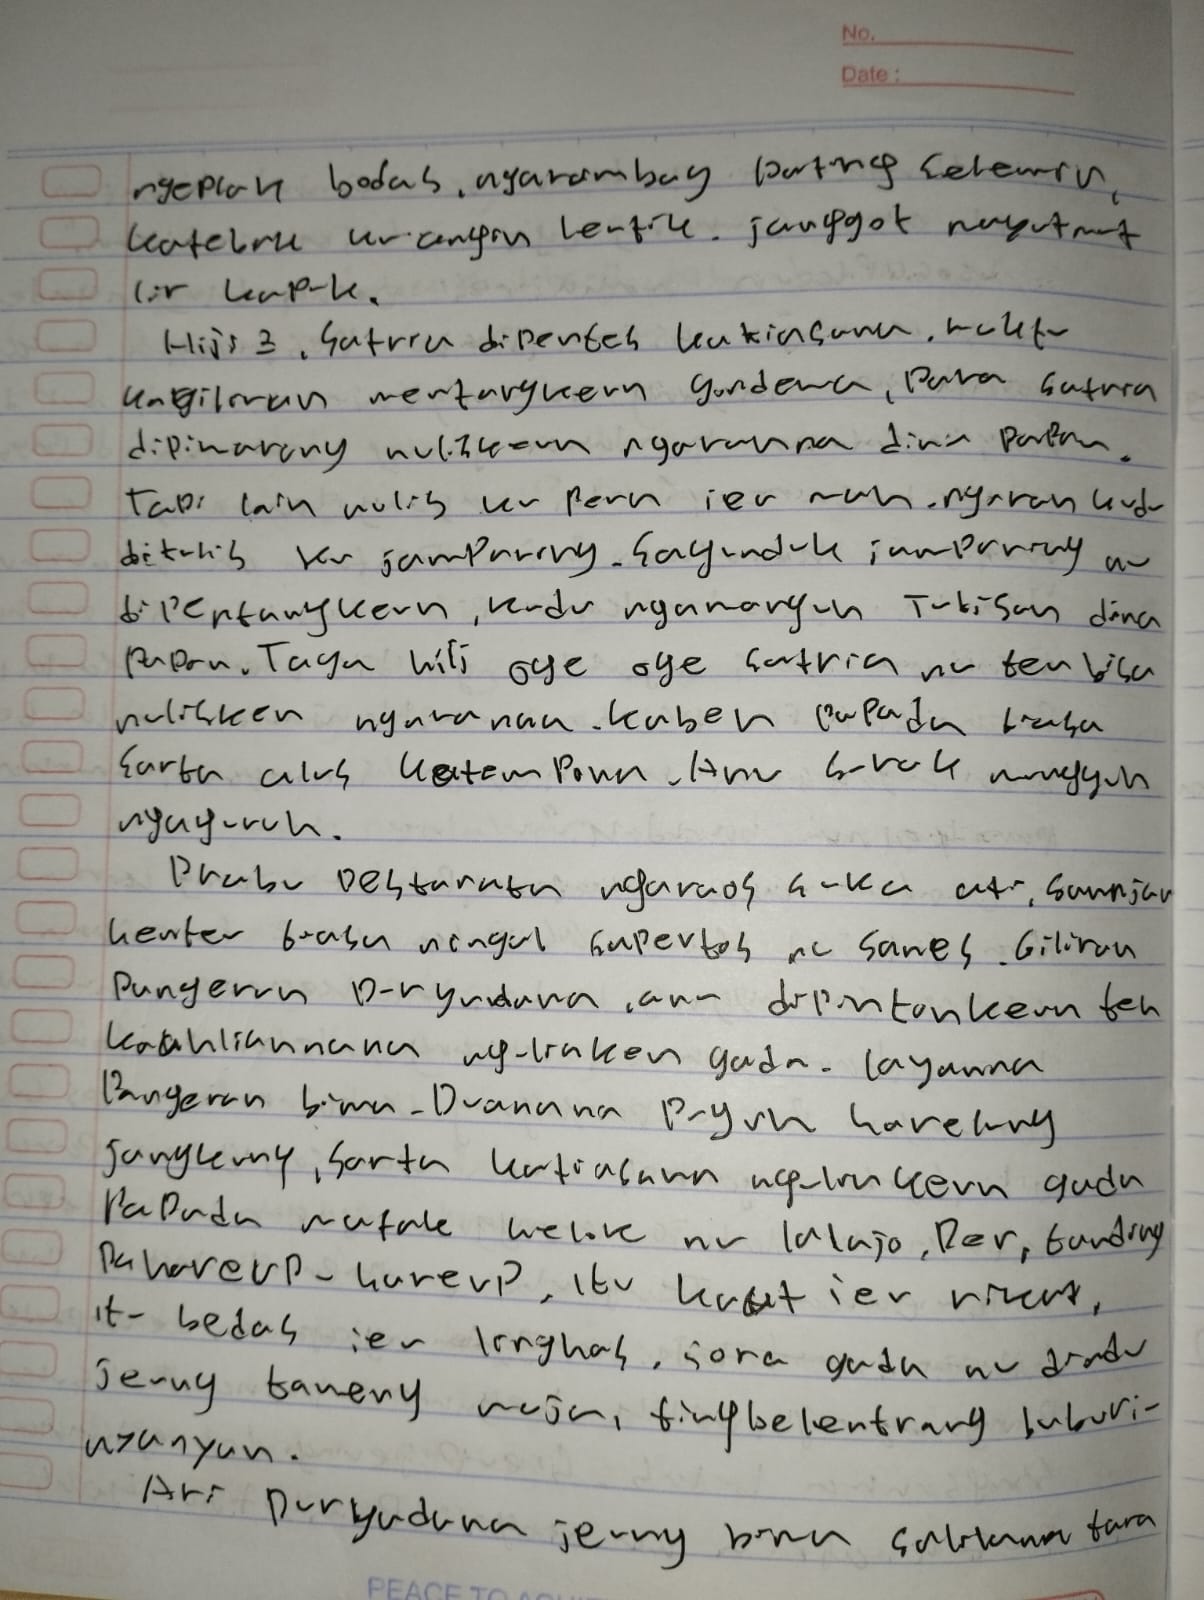 No.
Date :
ngeplak bodas, ngarambay pating
katebak ku angin leutik. janggot ngaputih
lir kapuk.
Hiji 2, Satria dipentes kabiasana, waktu
kagiliran mentangkeun gondewa, Para Satria
dipinareng nuliskeun ngaranna dina papan.
Tapi lain nulis ku pena ieu mah. ngaran kudu
ditulis ku jamparing. Sagunduk jamparing nu
dipentangkeun, kudu ngamangun Tulisan dina
papan. Taya hiji oge oge satria nu teu bisa
nulisken ngaranna. kabeh papada bisa
sarta alus katempona. Anu surak mungguh
ngaguruh.
Prabu Destarata ngaraos suka ati, sanajan
henteu biasa ningal sapertos nu sanes. Giliran
Pangeran Duryudana, anu dipintonkeun teh
kaahliannana ngulinken gada. layanna
Pangeran bima. Duanana Puguh harelung
jangkung, sarta kabiasana ngulinkeun gada
Papada matak helok nu lalajo, Der, tanding
pahareup-hareup, itu kuat ieu rikat,
itu bedas ieu linghas, sora gada nu diadu
jeung tameng waja, tingbelentrang luburi-
nyanyun.
Ari Duryudana jeung bima salilana tara
PEACE TO